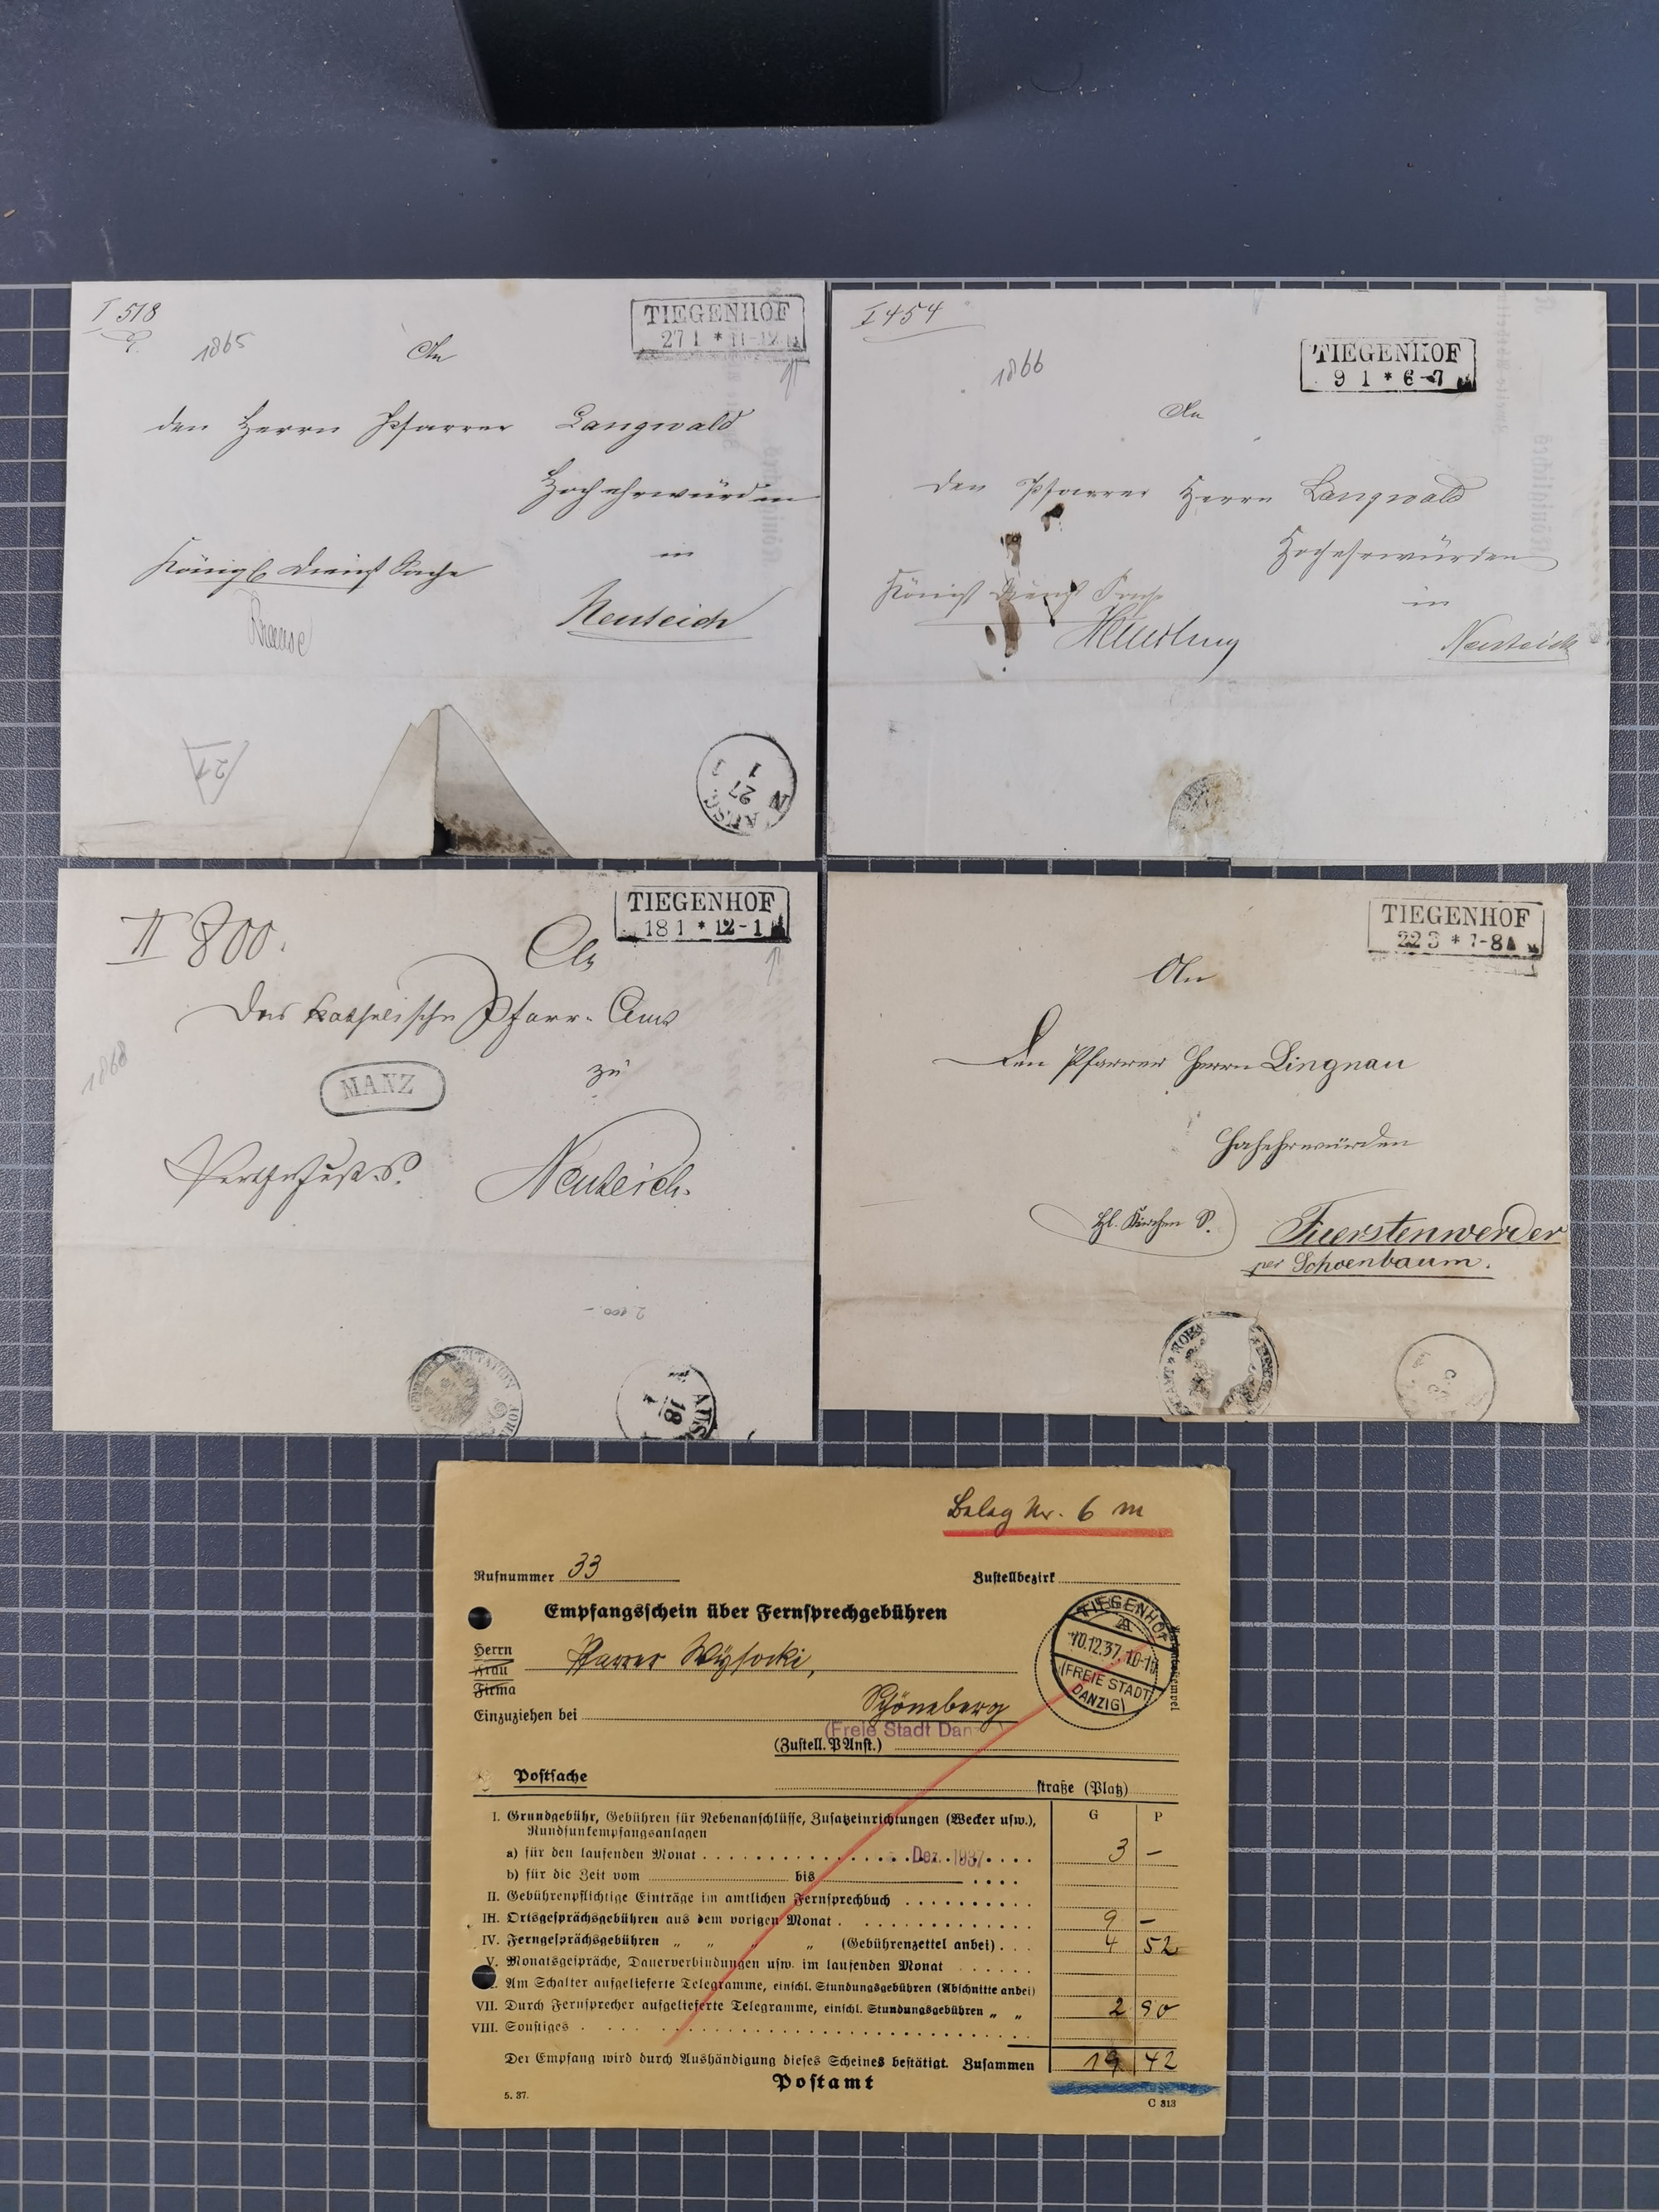 I 518
1865
TIEGENHOF
27 1 * 11-12
An
den Herrn Pfarrer Langwald
Hochehrwürden
in
Königl Dienst Sache
Neuteich
21
AUSG
27
1
I 454
1866
TIEGENHOF
9 1 * 6-7
An
den Pfarrer Herrn Langwald
Hochehrwürden
in
Neuteich
II 800.
TIEGENHOF
18 1 * 12-1
An
Das katholische Pfarr-Amt
1868
MANZ
zu
Neuteich.
2.100.-
AUS
18
TIEGENHOF
22 3 * 7-8
An
Den Pfarrer Herrn Lingnau
Hochehrwürden
Kirchen S.
Fuerstenwerder
per Schoenbaum.
Beleg Nr. 6 m
Rufnummer 33
Zustellbezirk
Empfangsschein über Fernsprechgebühren
TIEGENHOF
A
10.12.37. 10-11
(FREIE STADT
DANZIG)
Herrn
Frau
Firma
Pfarrer Wysocki,
Einzuziehen bei
Schöneberg
(Freie Stadt Dan
(Zustell. P Anst.)
Postsache
straße (Platz)
G P
I. Grundgebühr, Gebühren für Nebenanschlüsse, Zusatzeinrichtungen (Wecker usw.),
Rundfunkempfangsanlagen
a) für den laufenden Monat Dez. 1937 3 –
b) für die Zeit vom bis
II. Gebührenpflichtige Einträge im amtlichen Fernsprechbuch
III. Ortsgesprächsgebühren aus dem vorigen Monat 9 –
IV. Ferngesprächsgebühren „ „ „ „ (Gebührenzettel anbei) 4 52
V. Monatsgespräche, Dauerverbindungen usw. im laufenden Monat
Am Schalter aufgelieferte Telegramme, einschl. Stundungsgebühren (Abschnitte anbei)
VII. Durch Fernsprecher aufgelieferte Telegramme, einschl. Stundungsgebühren „ „ 2 90
VIII. Sonstiges
Der Empfang wird durch Aushändigung dieses Scheines bestätigt. Zusammen 19 42
Postamt
5. 37.
C 313